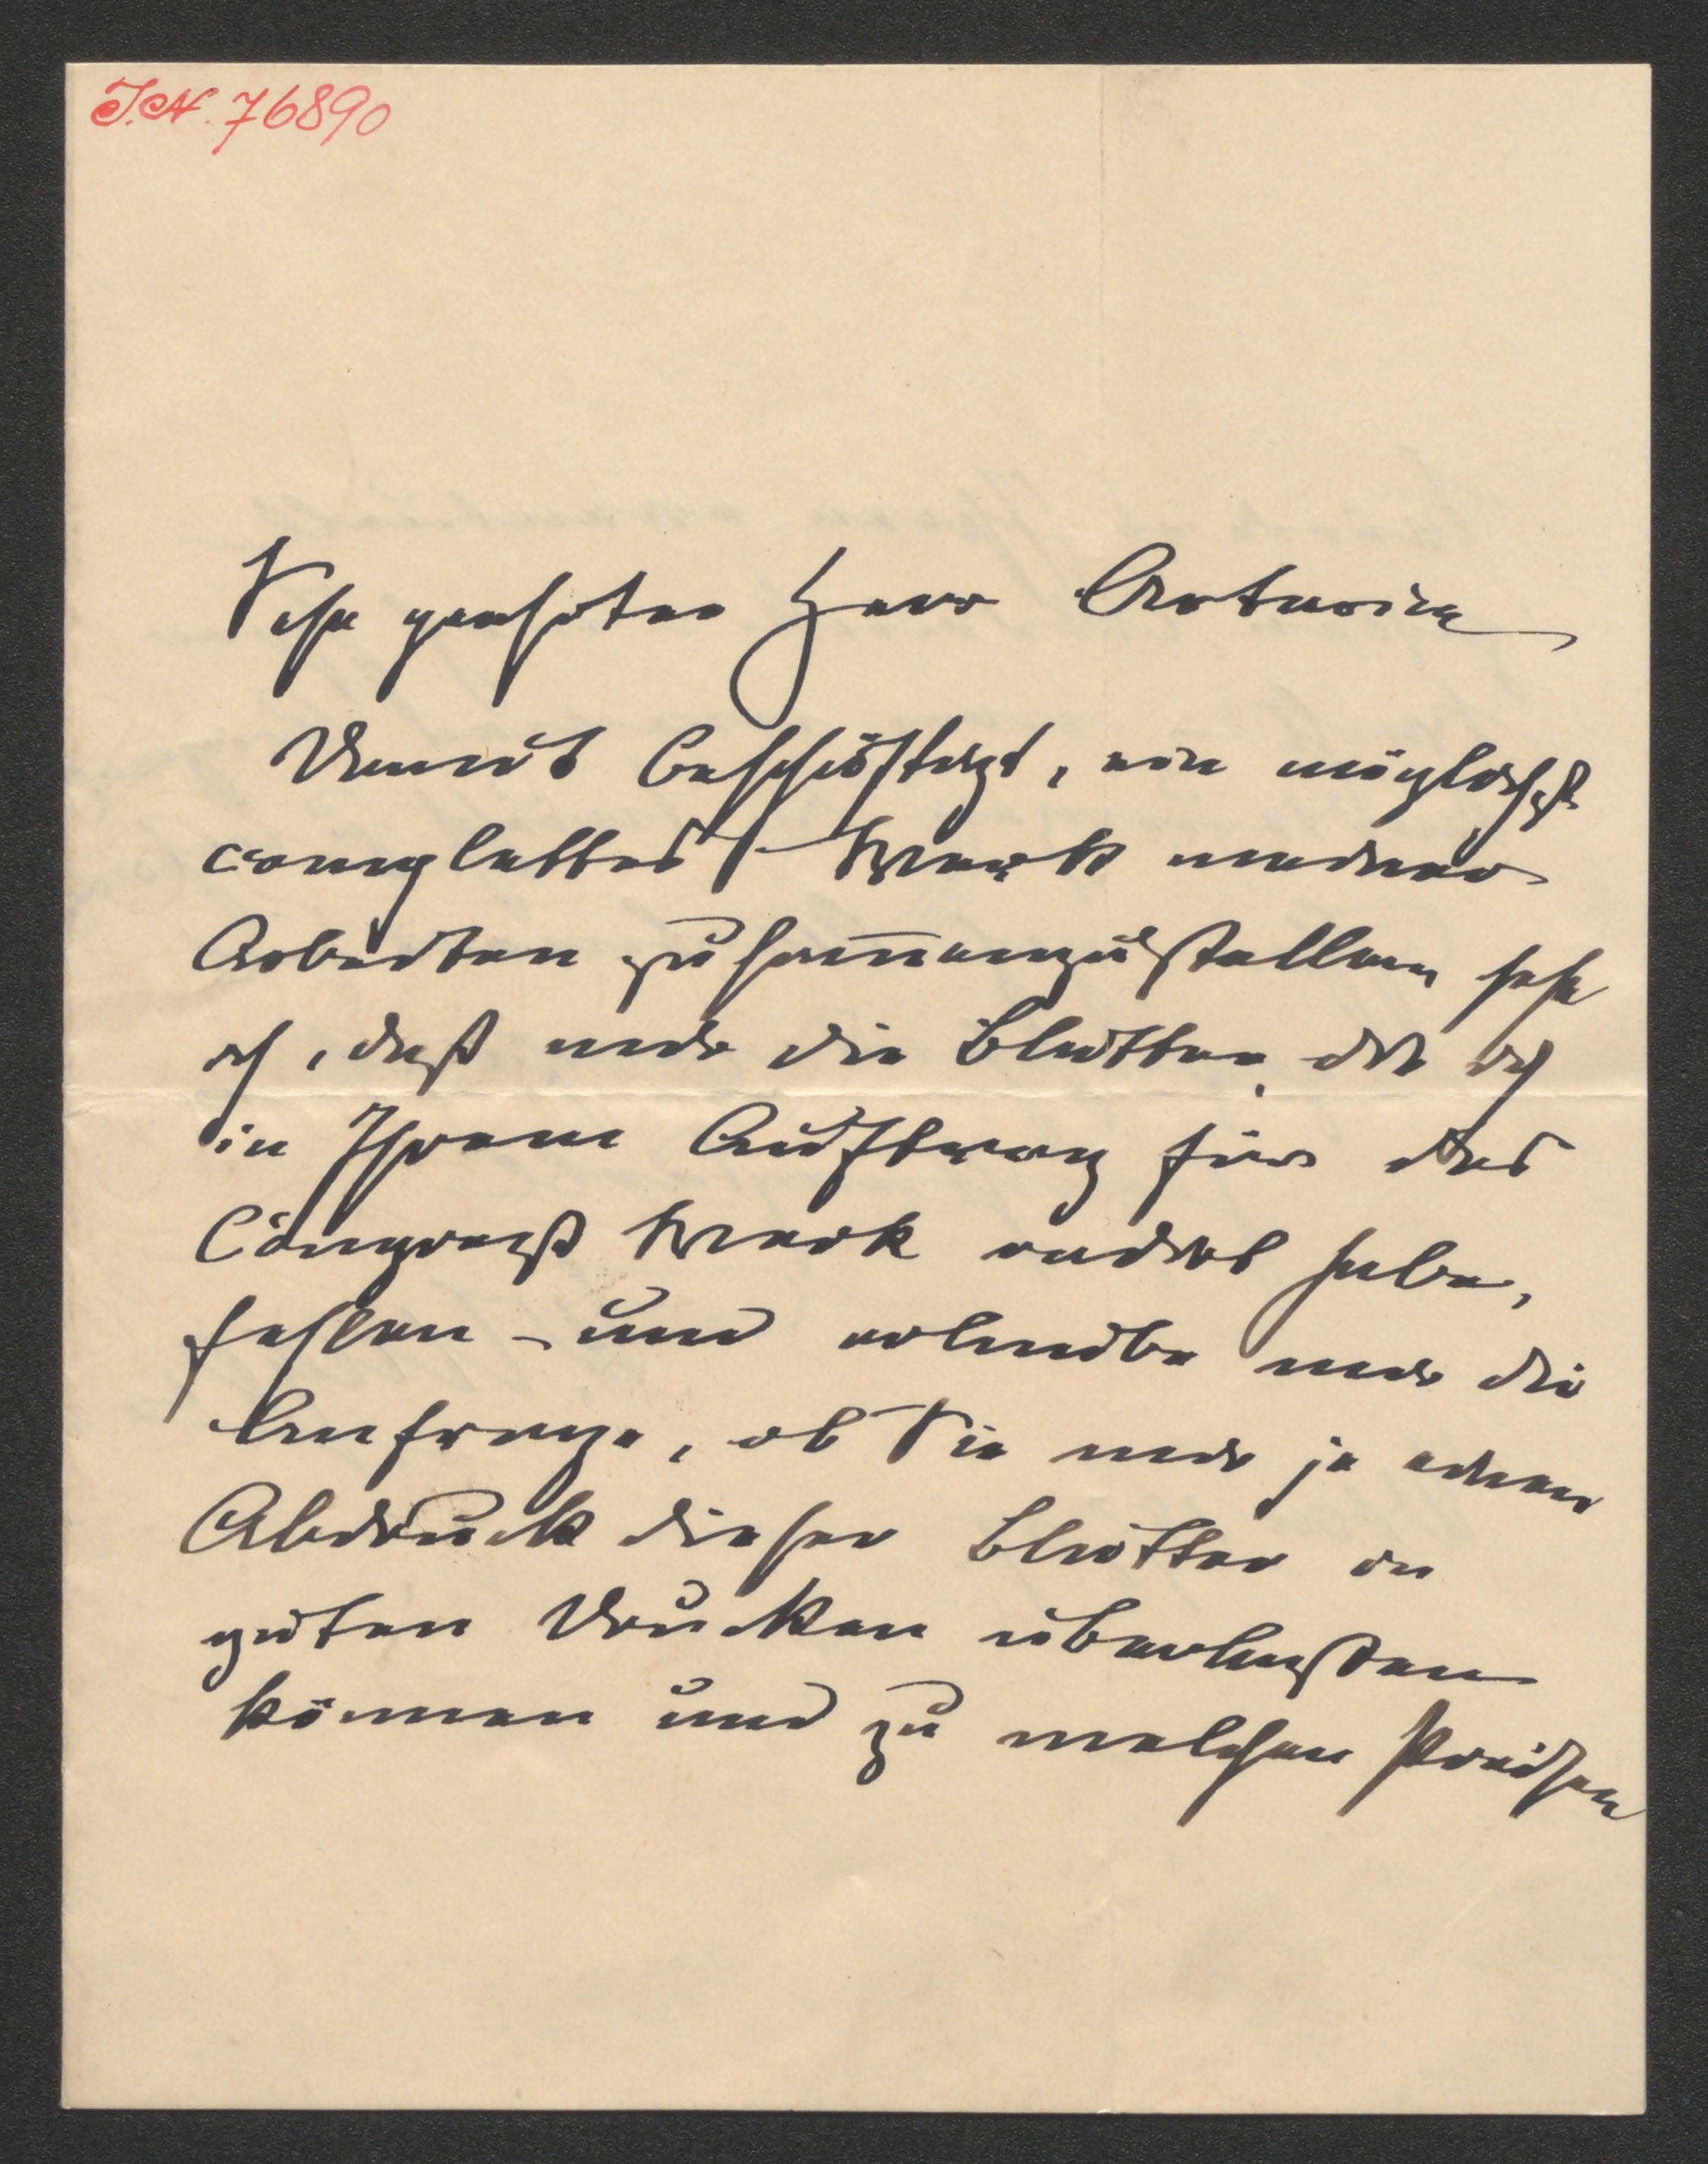 J.N. 76890
Sehr geehrter Herr Artaria
Damit beschäftigt, ein möglichst
complettes Werk meiner
Arbeiten zusam̅enzustellen sehe
ich, daß mir die Blätter, die ich
in Ihrem Auftrag für das
Congreß Werk radirt habe,
fehlen – und erlaube mir die
Anfrage, ob Sie mir je einen
Abdruck dieser Blätter in
guten Drucken überlaßen
können und zu welchen Preisen